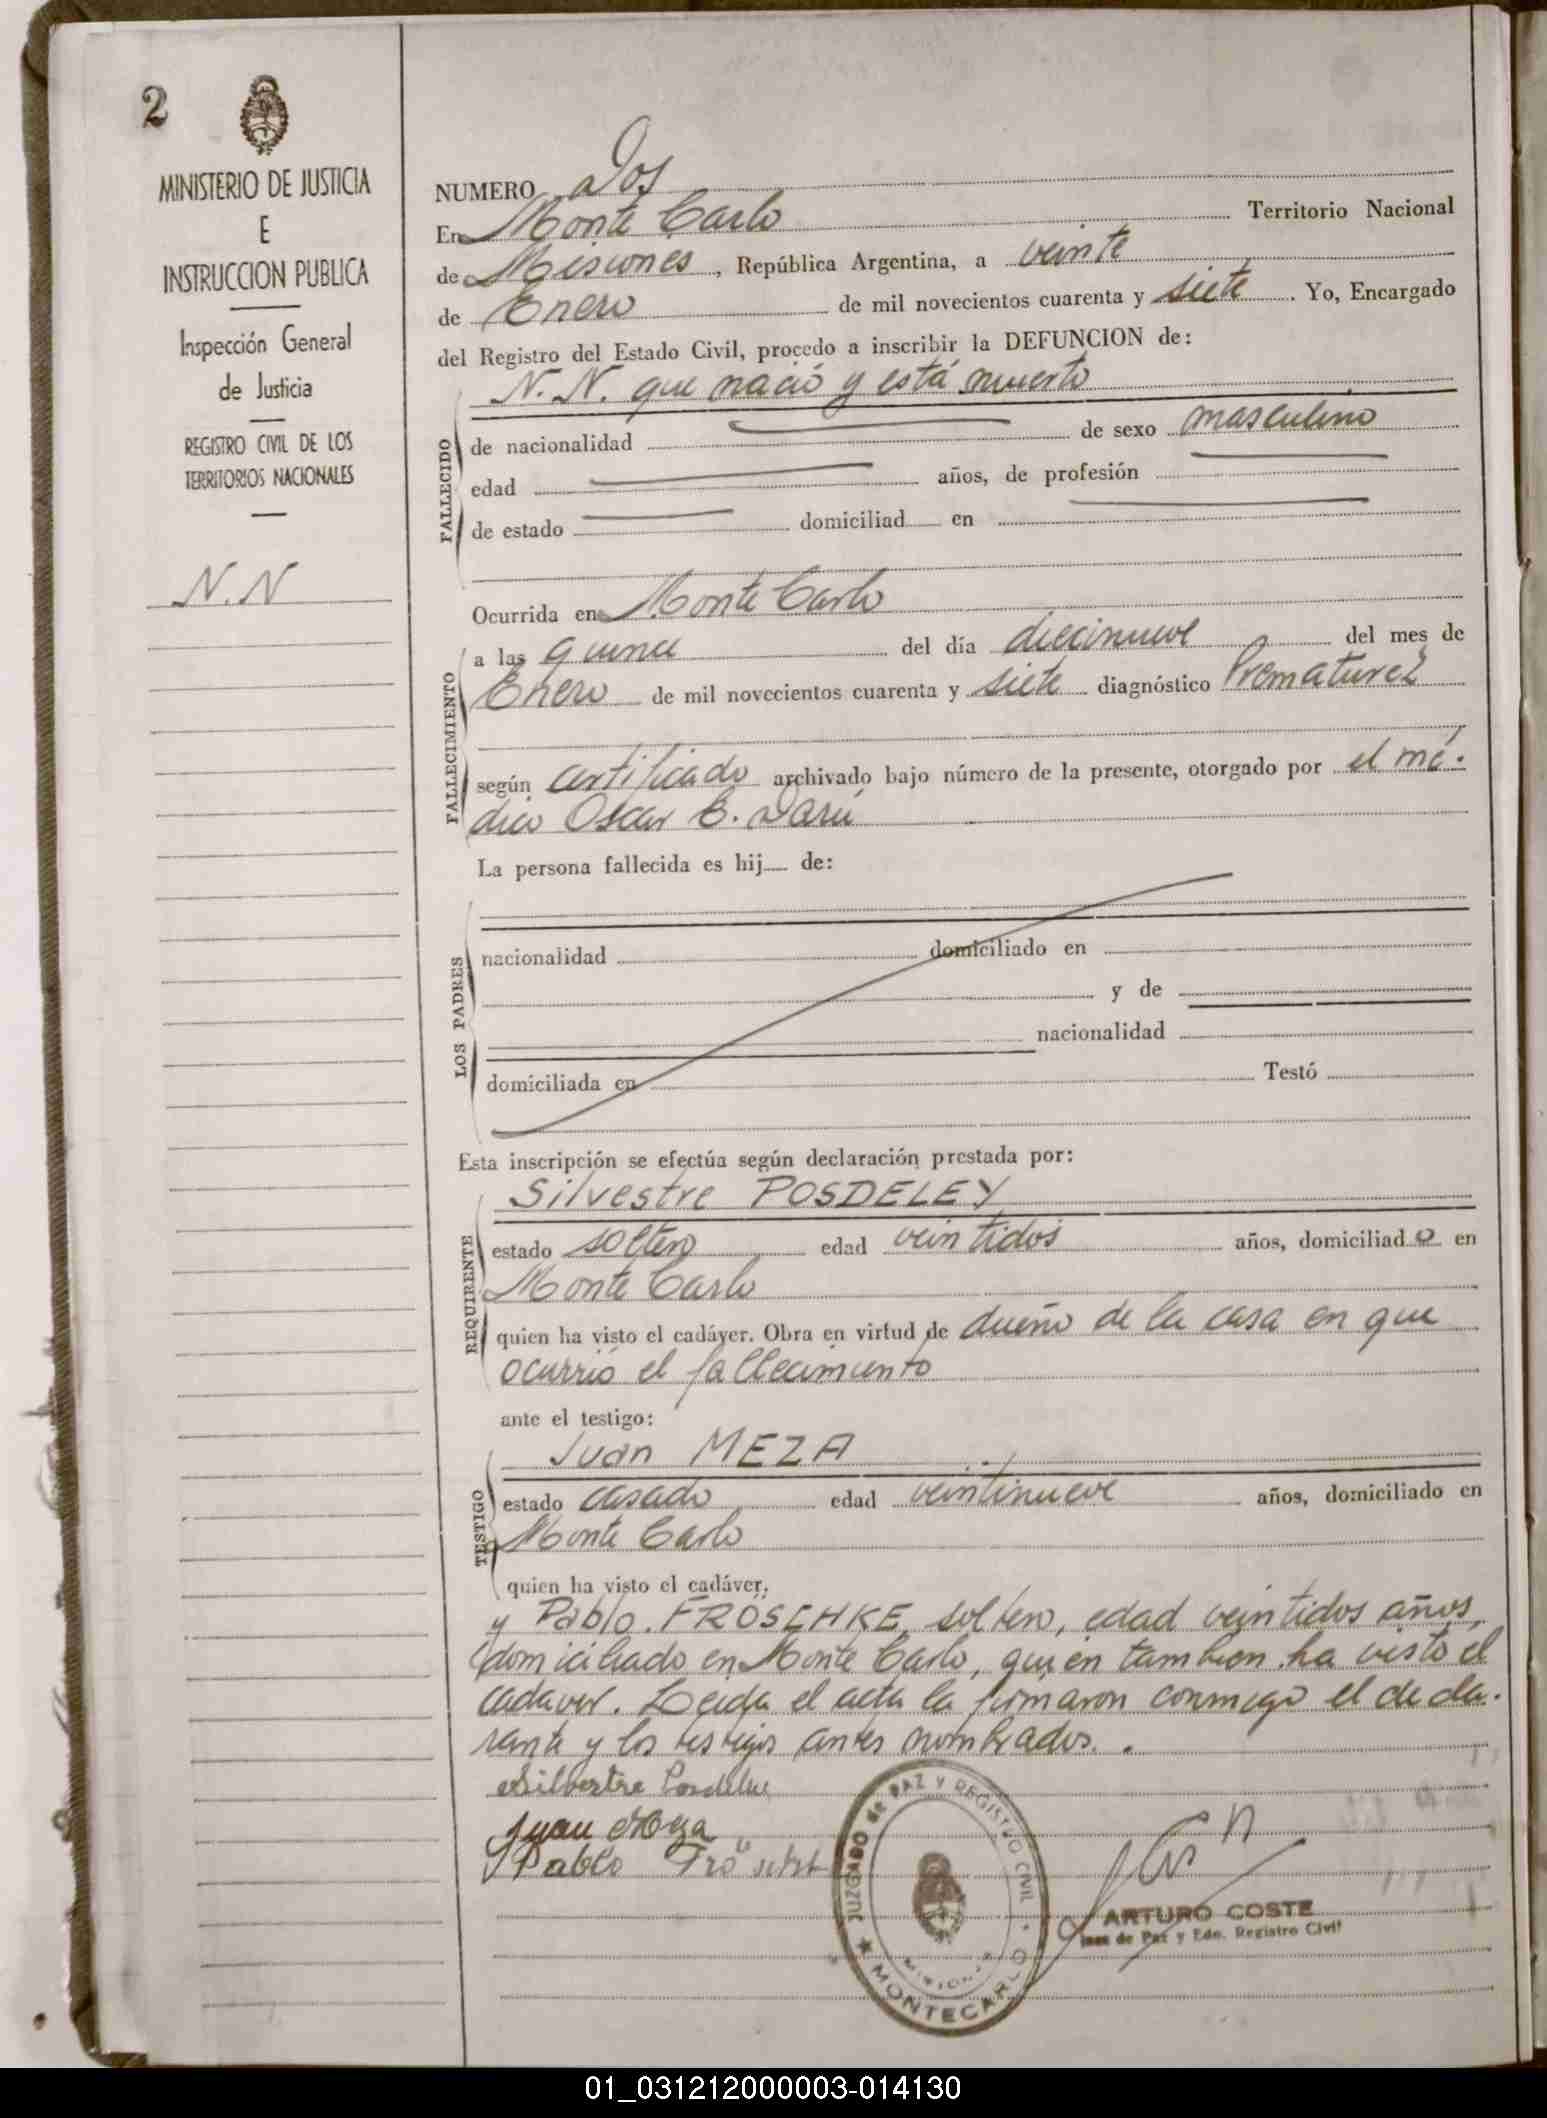 2
MINISTERIO DE JUSTICIA
E
INSTRUCCION PUBLICA
Inspección General
de Justicia
REGISTRO CIVIL DE LOS
TERRITORIOS NACIONALES
N.N
NUMERO Dos
En Monte Carlo Territorio Nacional
de Misiones, República Argentina, a veinte
de Enero de mil novecientos cuarenta y siete. Yo, Encargado
del Registro del Estado Civil, procedo a inscribir la DEFUNCION de:
FALLECIDO
N. N. que nació y está muerto
de nacionalidad de sexo masculino
edad años, de profesión
de estado domiciliad en
Ocurrida en Monte Carlo
FALLECIMIENTO
a las quince del día diecinueve del mes de
Enero de mil novecientos cuarenta y siete diagnóstico Prematurez
según certificado archivado bajo número de la presente, otorgado por el mé-
dico Oscar E. Darú
La persona fallecida es hij de:
LOS PADRES
nacionalidad domiciliado en
y de
nacionalidad
domiciliada en Testó
Esta inscripción se efectúa según declaración prestada por:
REQUIRENTE
Silvestre POSDELEY
estado soltero edad veintidos años, domiciliado en
Monte Carlo
quien ha visto el cadáver. Obra en virtud de dueño de la casa en que
ocurrió el fallecimiento
ante el testigo:
TESTIGO
Juan MEZA
estado casado edad veintinueve años, domiciliado en
Monte Carlo
quien ha visto el cadáver.
y Pablo FRÖSCHKE, soltero, edad veintidos años,
domiciliado en Monte Carlo, quien tambien ha visto el
cadaver. Leida el acta la firmaron conmigo el decla-
rante y los testigos antes nombrados.
Silvestre
Juan Meza
Pablo
JUZGADO de PAZ Y REGISTRO CIVIL
MISIONES
★ MONTECARLO
ARTURO COSTE
Juez de Paz y Edo. Registro Civil
01_031212000003-014130